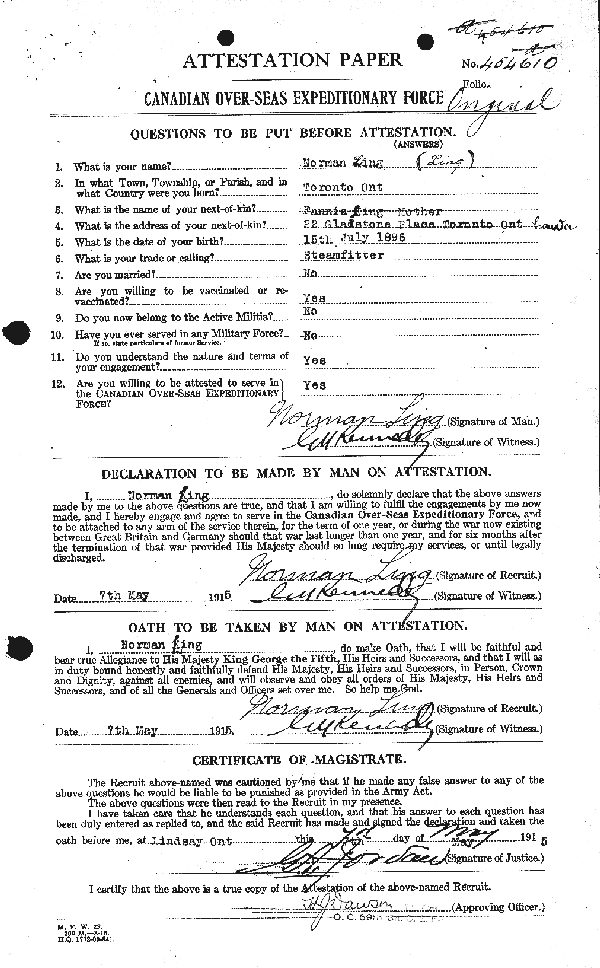 454610
ATTESTATION PAPER
No. 454610
Folio.
CANADIAN OVER-SEAS EXPEDITIONARY FORCE
Original
QUESTIONS TO BE PUT BEFORE ATTESTATION.
(ANSWERS)
1. What is your name? Norman Ling (Ling)
2. In what Town, Township, or Parish, and in
what Country were you born? Toronto Ont
3. What is the name of your next-of-kin? Fannie Ling Mother
4. What is the address of your next-of-kin? 22 Gladstone Place Toronto Ont
5. What is the date of your birth? 15th July 1896
6. What is your trade or calling? Steamfitter
7. Are you married? No
8. Are you willing to be vaccinated or re-
vaccinated? Yes
9. Do you now belong to the Active Militia? No
10. Have you ever served in any Military Force? No
If so, state particulars of former Service.
11. Do you understand the nature and terms of
your engagement? Yes
12. Are you willing to be attested to serve in
the CANADIAN OVER-SEAS EXPEDITIONARY
FORCE? Yes
Norman Ling (Signature of Man.)
(Signature of Witness.)
DECLARATION TO BE MADE BY MAN ON ATTESTATION.
I, Norman Ling, do solemnly declare that the above answers
made by me to the above questions are true, and that I am willing to fulfil the engagements by me now
made, and I hereby engage and agree to serve in the Canadian Over-Seas Expeditionary Force, and
to be attached to any arm of the service therein, for the term of one year, or during the war now existing
between Great Britain and Germany should that war last longer than one year, and for six months after
the termination of that war provided His Majesty should so long require my services, or until legally
discharged.
Norman Ling (Signature of Recruit.)
Date 7th May 1915 (Signature of Witness.)
OATH TO BE TAKEN BY MAN ON ATTESTATION.
I, Norman Ling, do make Oath, that I will be faithful and
bear true Allegiance to His Majesty King George the Fifth, His Heirs and Successors, and that I will as
in duty bound honestly and faithfully defend His Majesty, His Heirs and Successors, in Person, Crown
and Dignity, against all enemies, and will observe and obey all orders of His Majesty, His Heirs and
Successors, and of all the Generals and Officers set over me. So help me God.
Norman Ling (Signature of Recruit.)
Date 7th May 1915. (Signature of Witness.)
CERTIFICATE OF MAGISTRATE.
The Recruit above-named was cautioned by me that if he made any false answer to any of the
above questions he would be liable to be punished as provided in the Army Act.
The above questions were then read to the Recruit in my presence.
I have taken care that he understands each question, and that his answer to each question has
been duly entered as replied to, and the said Recruit has made and signed the declaration and taken the
oath before me, at Lindsay Ont this 7th day of May 1915
(Signature of Justice.)
I certify that the above is a true copy of the Attestation of the above-named Recruit.
(Approving Officer.)
M. F. W. 23.